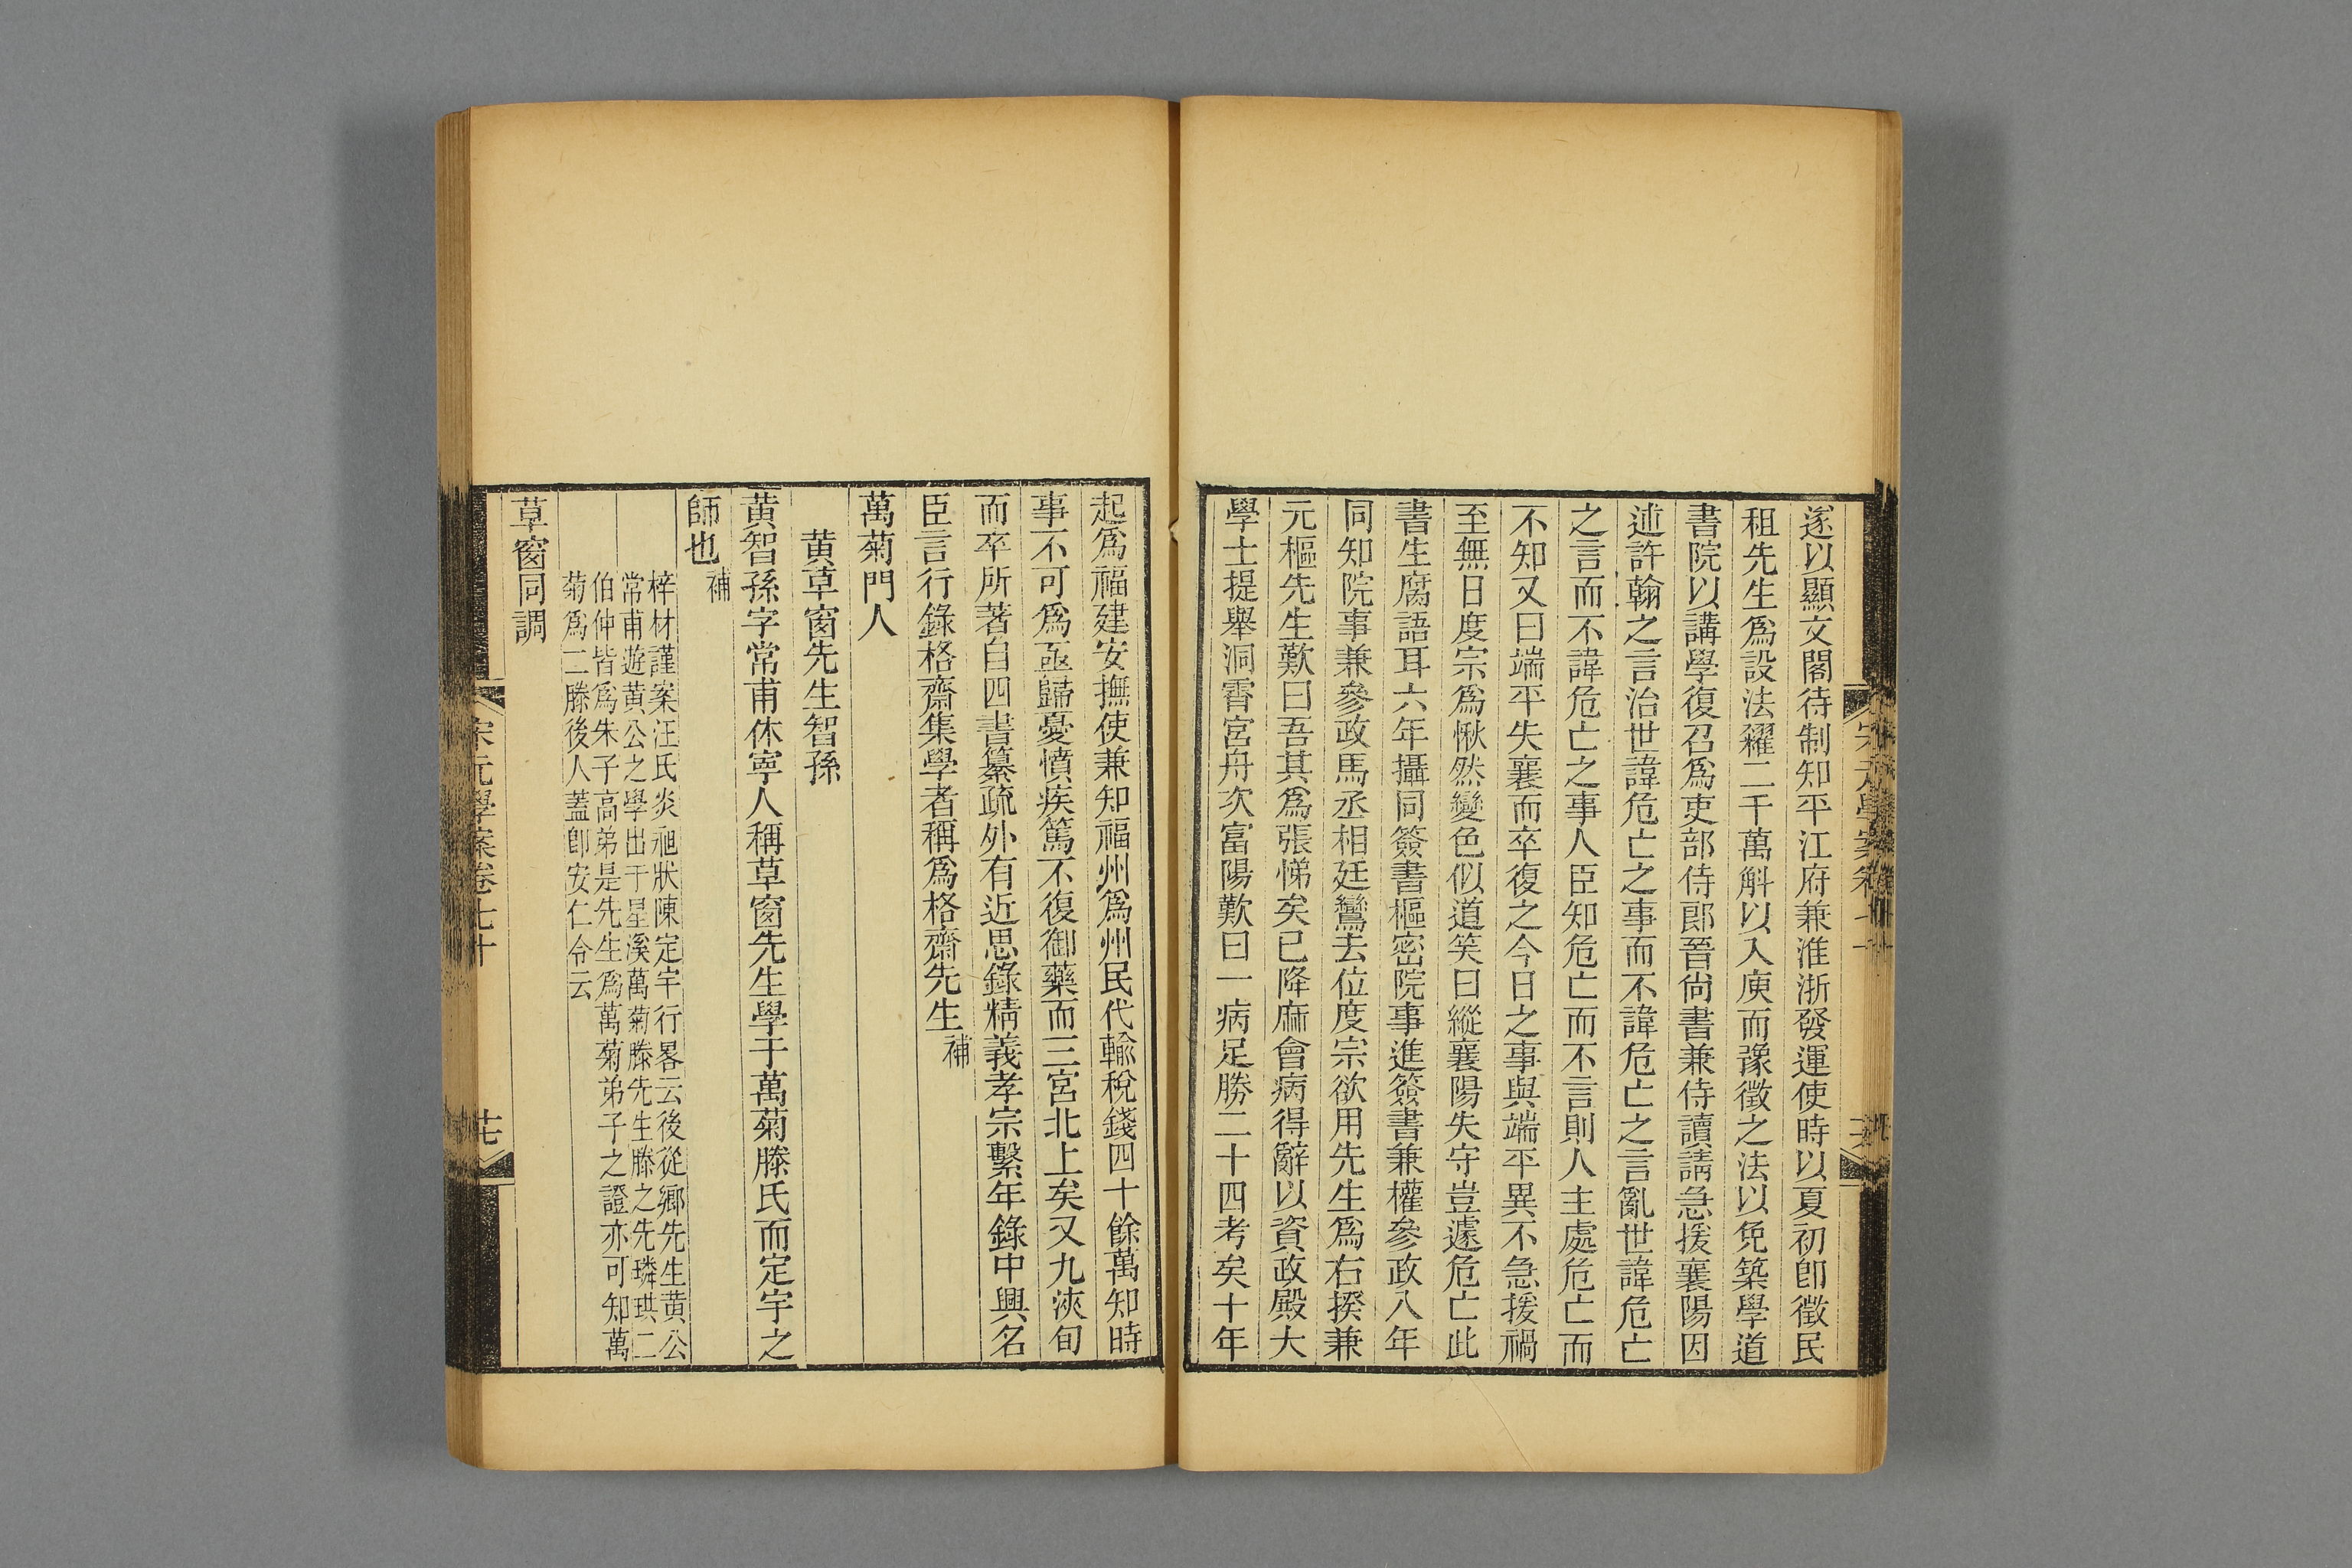 遂以顯文閣待制知平江府兼淮浙發運使時以夏初卽徵民
租先生爲設法糴二千萬斛以入庾而豫徵之法以免築學道
書院以講學復召爲吏部侍郎晉尙書兼侍讀請急援襄陽因
述許翰之言治世諱危亡之事而不諱危亡之言亂世諱危亡
之言而不諱危亡之事人臣知危亡而不言則人主處危亡而
不知又曰端平失襄而卒復之今日之事與端平異不急援禍
至無日度宗爲愀然變色似道笑曰縱襄陽失守豈遽危亡此
書生腐語耳六年攝同簽書樞密院事進簽書兼權參政八年
同知院事兼參政馬丞相廷鸞去位度宗欲用先生爲右揆兼
元樞先生歎曰吾其爲張悌矣已降麻會病得辭以資政殿大
學士提舉洞霄宮舟次富陽歎曰一病足勝二十四考矣十年
起爲福建安撫使兼知福州爲州民代輸稅錢四十餘萬知時
事不可爲亟歸憂憤疾篤不復御藥而三宮北上矣又九浹旬
而卒所著自四書纂疏外有近思錄精義孝宗繫年錄中興名
臣言行錄格齋集學者稱爲格齋先生補
萬菊門人
黃草窗先生智孫
黃智孫字常甫休寧人稱草窗先生學于萬菊滕氏而定宇之
師也補
梓材謹案汪氏炎昶狀陳定宇行畧云後從鄉先生黃公
常甫遊黃公之學出于星溪萬菊滕先生滕之先璘珙二
伯仲皆爲朱子高弟是先生爲萬菊弟子之證亦可知萬
菊爲二滕後人蓋卽安仁令云
草窗同調
宋元學案卷七十